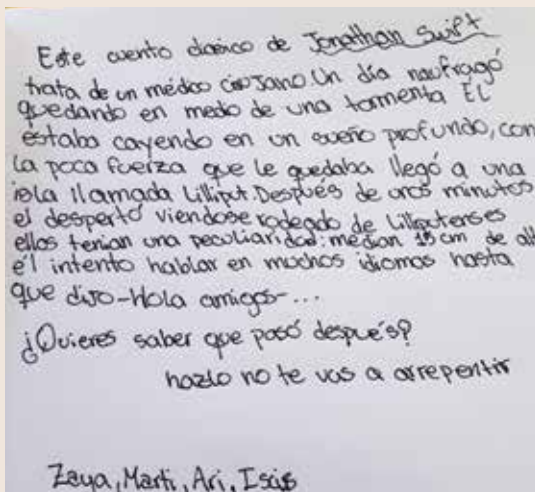 Este cuento clasico de Jonathan Swift
trata de un médico cirojano. Un día naufragó
quedando en medo de una tormenta EL
estaba cayendo en un sueño profundo, con
la poca fuerza que le quedaba llegó a una
isla llamada Lilliput. Después de unos minutos
el desperto viendose rodeado de Lilliputenses
ellos tenian una peculiaridad: median 15 cm de alt
él intento hablar en muchos idiomas hasta
que dijo-Hola amigos-...
¿Quieres saber que pasó después?
hazlo no te vas a arrepentir
Zaya, Marti, Ari, Isis